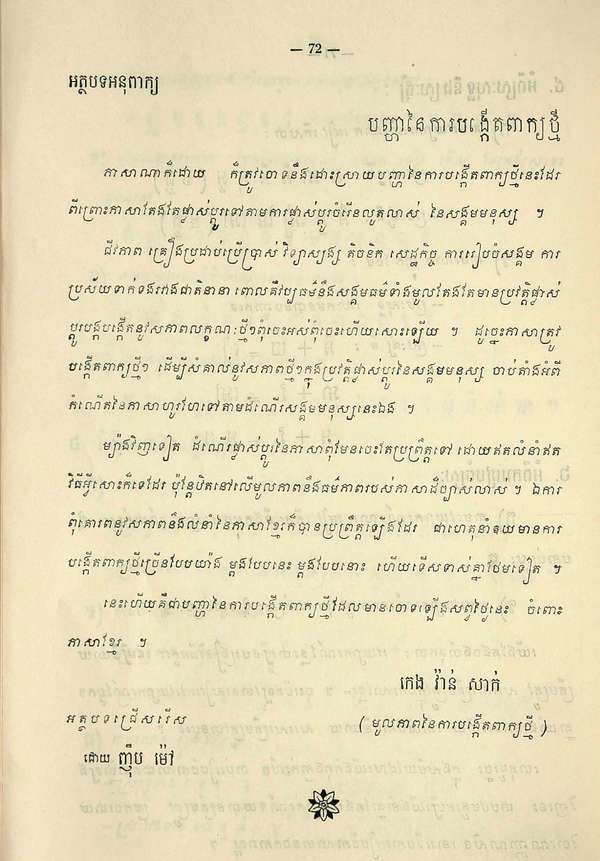 — 72 —
អត្ថបទអនុពាក្យ
បញ្ហានៃការបង្កើតពាក្យថ្មី
ភាសាណាក៏ដោយ ក៏ត្រូវចោទនឹងដោះស្រាយបញ្ហានៃការបង្កើតពាក្យថ្មីនេះដែរ
ពីព្រោះភាសាតែងតែផ្លាស់ប្តូរទៅតាមការផ្លាស់ប្តូរចំរើនលូតលាស់ នៃសង្គមមនុស្ស ។
ជីវភាព គ្រឿងប្រដាប់ប្រើប្រាស់ វិទ្យាសាស្ត្រ តិចនិក សេដ្ឋកិច្ច ការរៀបចំសង្គម ការ
ប្រស័យទាក់ទងរវាងជាតិនានា ពោលគឺវប្បធម៌នឹងសង្គមធម៌ទាំងមូលតែងតែមានប្រវត្តិផ្លាស់
ប្តូរបង្កបង្កើតនូវសភាពលក្ខណៈថ្មីៗពុំចេះអស់ពុំចេះហើយសោះឡើយ ។ ដូច្នេះភាសាត្រូវ
បង្កើតពាក្យថ្មីៗ ដើម្បីសំគាល់នូវសភាពថ្មីៗក្នុងប្រវត្តិផ្លាស់ប្តូរនៃសង្គមមនុស្ស ចាប់តាំងអំពី
កំណើតនៃភាសាហូរហែទៅតាមដំណើរសង្គមមនុស្សនេះឯង ។
ម្យ៉ាងវិញទៀត ដំណើរផ្លាស់ប្តូរនៃភាសាពុំមែនចេះតែប្រព្រឹត្តទៅ ដោយឥតលំនាំឥត
វិធីអ្វីសោះក៏ទេដែរ ប៉ុន្តែបិតនៅលើមូលភាពនឹងធម៌ភាពរបស់ភាសាដ៏ច្បាស់លាស់ ។ ឯការ
ពុំគោរពនូវសភាពនឹងលំនាំនៃភាសាខ្មែរក៏បានប្រព្រឹត្តឡើងដែរ ជាហេតុនាំឲយមានការ
បង្កើតពាក្យថ្មីច្រើនបែបយ៉ាង ម្តងបែបនេះ ម្តងបែបនោះ ហើយទើសទាស់គ្នាថែមទៀត ។
នេះហើយគឺជាបញ្ហានៃការបង្កើតពាក្យថ្មីដែលមានចោទឡើងសព្វថ្ងៃនេះ ចំពោះ
ភាសាខ្មែរ ។
កេង វ៉ាន់ សាក់
( មូលភាពនៃការបង្កើតពាក្យថ្មី )
អត្ថបទជ្រើសរើស
ដោយ ញ៉ឹប ម៉ៅ